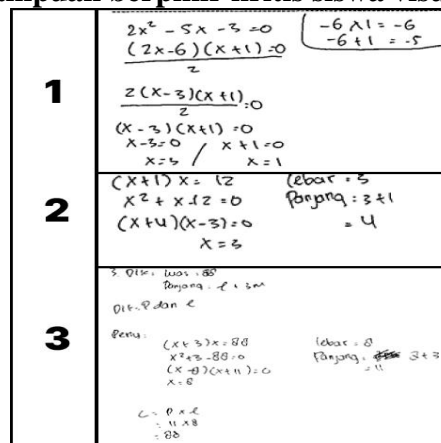 1
2x² - 5x - 3 = 0
-6 x 1 = -6
-6 + 1 = -5
(2x-6)(x+1) = 0
2
2(x-3)(x+1) = 0
2
(x-3)(x+1) = 0
x-3=0 / x+1=0
x=3 x=1
2
(x+1) x = 12
x² + x - 12 = 0
(x+4)(x-3) = 0
x = 3
lebar = 3
Panjang = 3+1
= 4
3
3. Dik: luas = 88
Panjang = l + 3m
Dit: P dan l
Peny:
(x+3)x = 88
x²+3-88=0
(x-8)(x+11)=0
x=8
lebar = 8
Panjang = 8+3
= 11
L = P x l
= 11 x 8
= 88